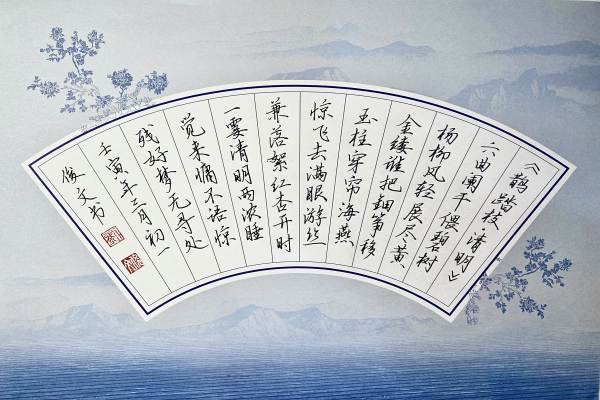 《鹊踏枝 清明》
六曲阑干偎碧树
杨柳风轻展尽黄
金缕谁把钿筝移
玉柱穿帘海燕
惊飞去满眼游丝
兼落絮红杏开时
一霎清明雨浓睡
觉来慵不语惊
残好梦无寻处
壬寅年三月初一
俊文书